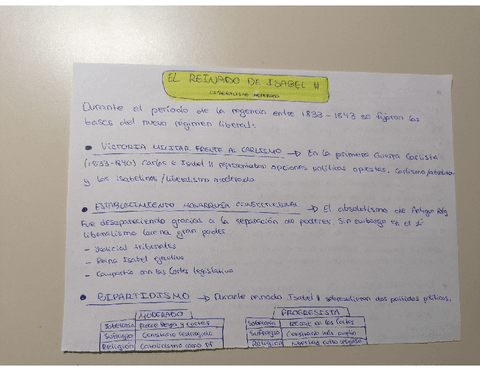 EL REINADO DE ISABEL II
LIBERALISMO MODERADO
Durante el período de la regencia entre 1833-1843 se fijaron las
bases del nuevo régimen liberal:
• VICTORIA MILITAR FRENTE AL CARLISMO → En la primera Guerra Carlista
(1833-1840) Carlos e Isabel II representaban opciones políticas opuestas. Carlismo/
y los isabelinos/liberalismo moderado
• ESTABLECIMIENTO MONARQUÍA CONSTITUCIONAL → El absolutismo del Antiguo Rég
fue desapareciendo gracias a la separación de poderes. Sin embargo en el
liberalismo corona gran poder
- Judicial tribunales
- Reina Isabel ejecutivo
- Compartía con las Cortes legislativo
• BIPARTIDISMO → Durante reinado Isabel II dos partidos políticos.
MODERADO PROGRESISTA
Soberanía Reyes y Cortes Soberanía en las Cortes
Sufragio Censitario Sufragio Censitario más amplio
Religión Catolicismo como Religión Libertad culto